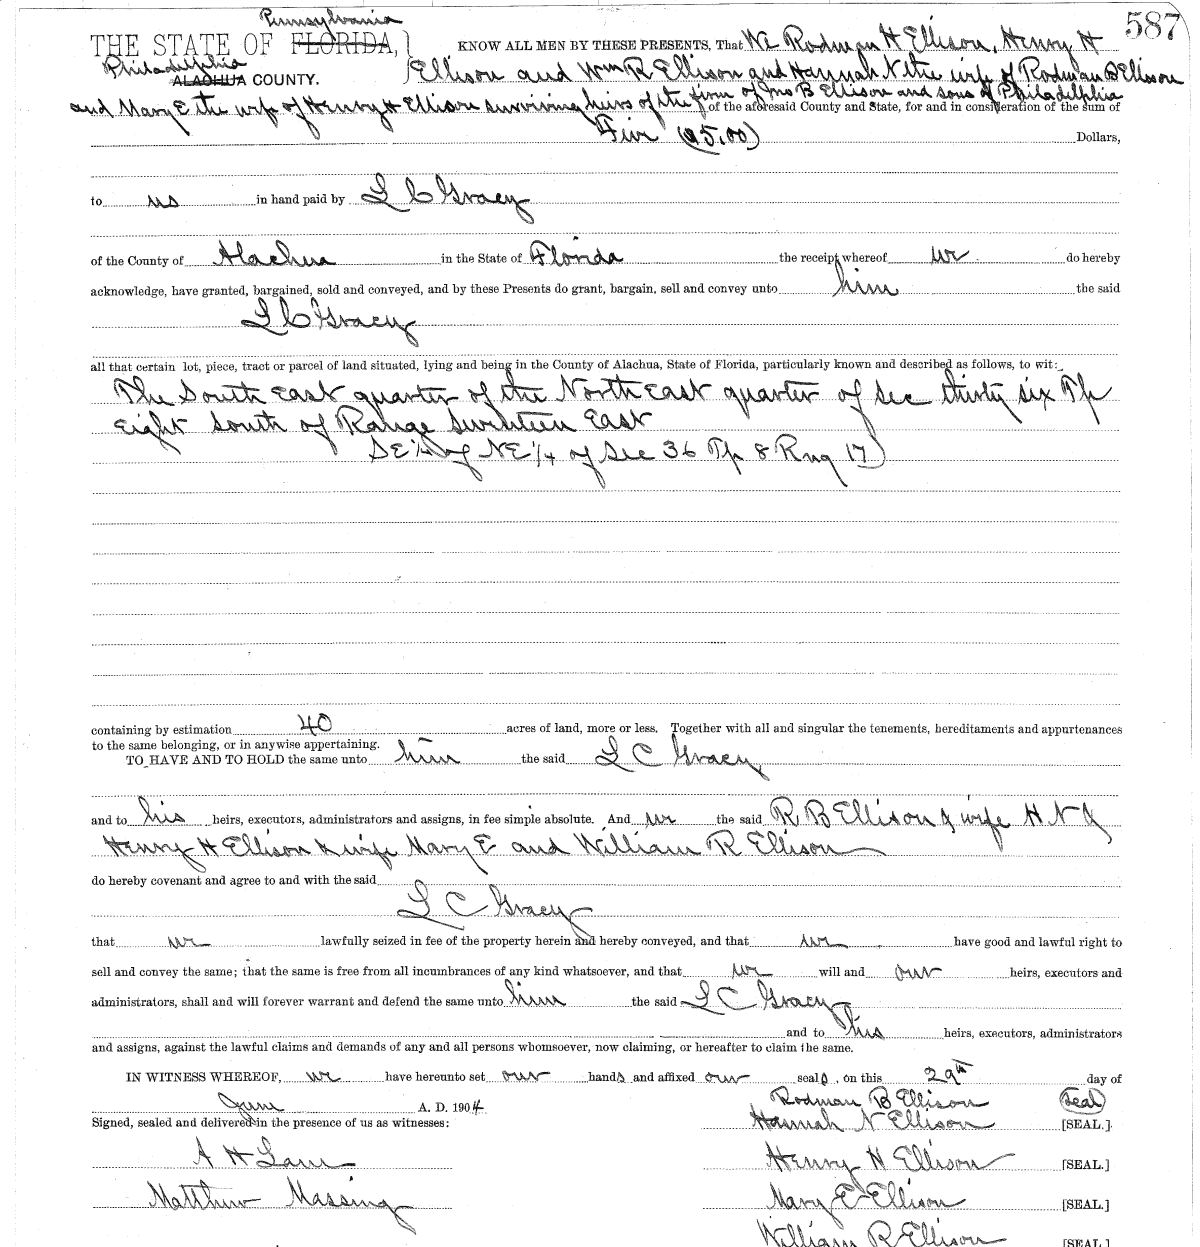 587
Pennsylvania
THE STATE OF FLORIDA,
KNOW ALL MEN BY THESE PRESENTS, That We Rodman H Ellison, Henry H
Philadelphia
ALACHUA COUNTY.
Ellison and Wm R Ellison and Hannah N the wife of Rodman B Ellison
and Mary E the wife of Henry H Ellison surviving heirs of the firm of Jno B Ellison and sons of Philadelphia
of the aforesaid County and State, for and in consideration of the sum of
Five ($5.00) Dollars,
to us in hand paid by L C Gracy
of the County of Alachua in the State of Florida the receipt whereof we do hereby
acknowledge, have granted, bargained, sold and conveyed, and by these Presents do grant, bargain, sell and convey unto him the said
L C Gracy
all that certain lot, piece, tract or parcel of land situated, lying and being in the County of Alachua, State of Florida, particularly known and described as follows, to wit:
The South East quarter of the North East quarter of Sec thirty six Tp
Eight South of Range Seventeen East
SE 1/4 of NE 1/4 of Sec 36 Tp 8 Rng 17)
containing by estimation 40 acres of land, more or less. Together with all and singular the tenements, hereditaments and appurtenances
to the same belonging, or in anywise appertaining.
TO HAVE AND TO HOLD the same unto him the said L C Gracy
and to his heirs, executors, administrators and assigns, in fee simple absolute. And we the said R B Ellison & wife H N &
Henry H Ellison & wife Mary E and William R Ellison
do hereby covenant and agree to and with the said
L C Gracy
that we lawfully seized in fee of the property herein and hereby conveyed, and that we have good and lawful right to
sell and convey the same; that the same is free from all incumbrances of any kind whatsoever, and that we will and our heirs, executors and
administrators, shall and will forever warrant and defend the same unto him the said L C Gracy
and to his heirs, executors, administrators
and assigns, against the lawful claims and demands of any and all persons whomsoever, now claiming, or hereafter to claim the same.
IN WITNESS WHEREOF, we have hereunto set our hands and affixed our seals, on this 29th day of
June A. D. 1904 Rodman B Ellison (Seal)
Signed, sealed and delivered in the presence of us as witnesses: Hannah N Ellison [SEAL.]
A H Henry H Ellison [SEAL.]
Matthew Massing Mary E Ellison [SEAL.]
William R Ellison [SEAL.]